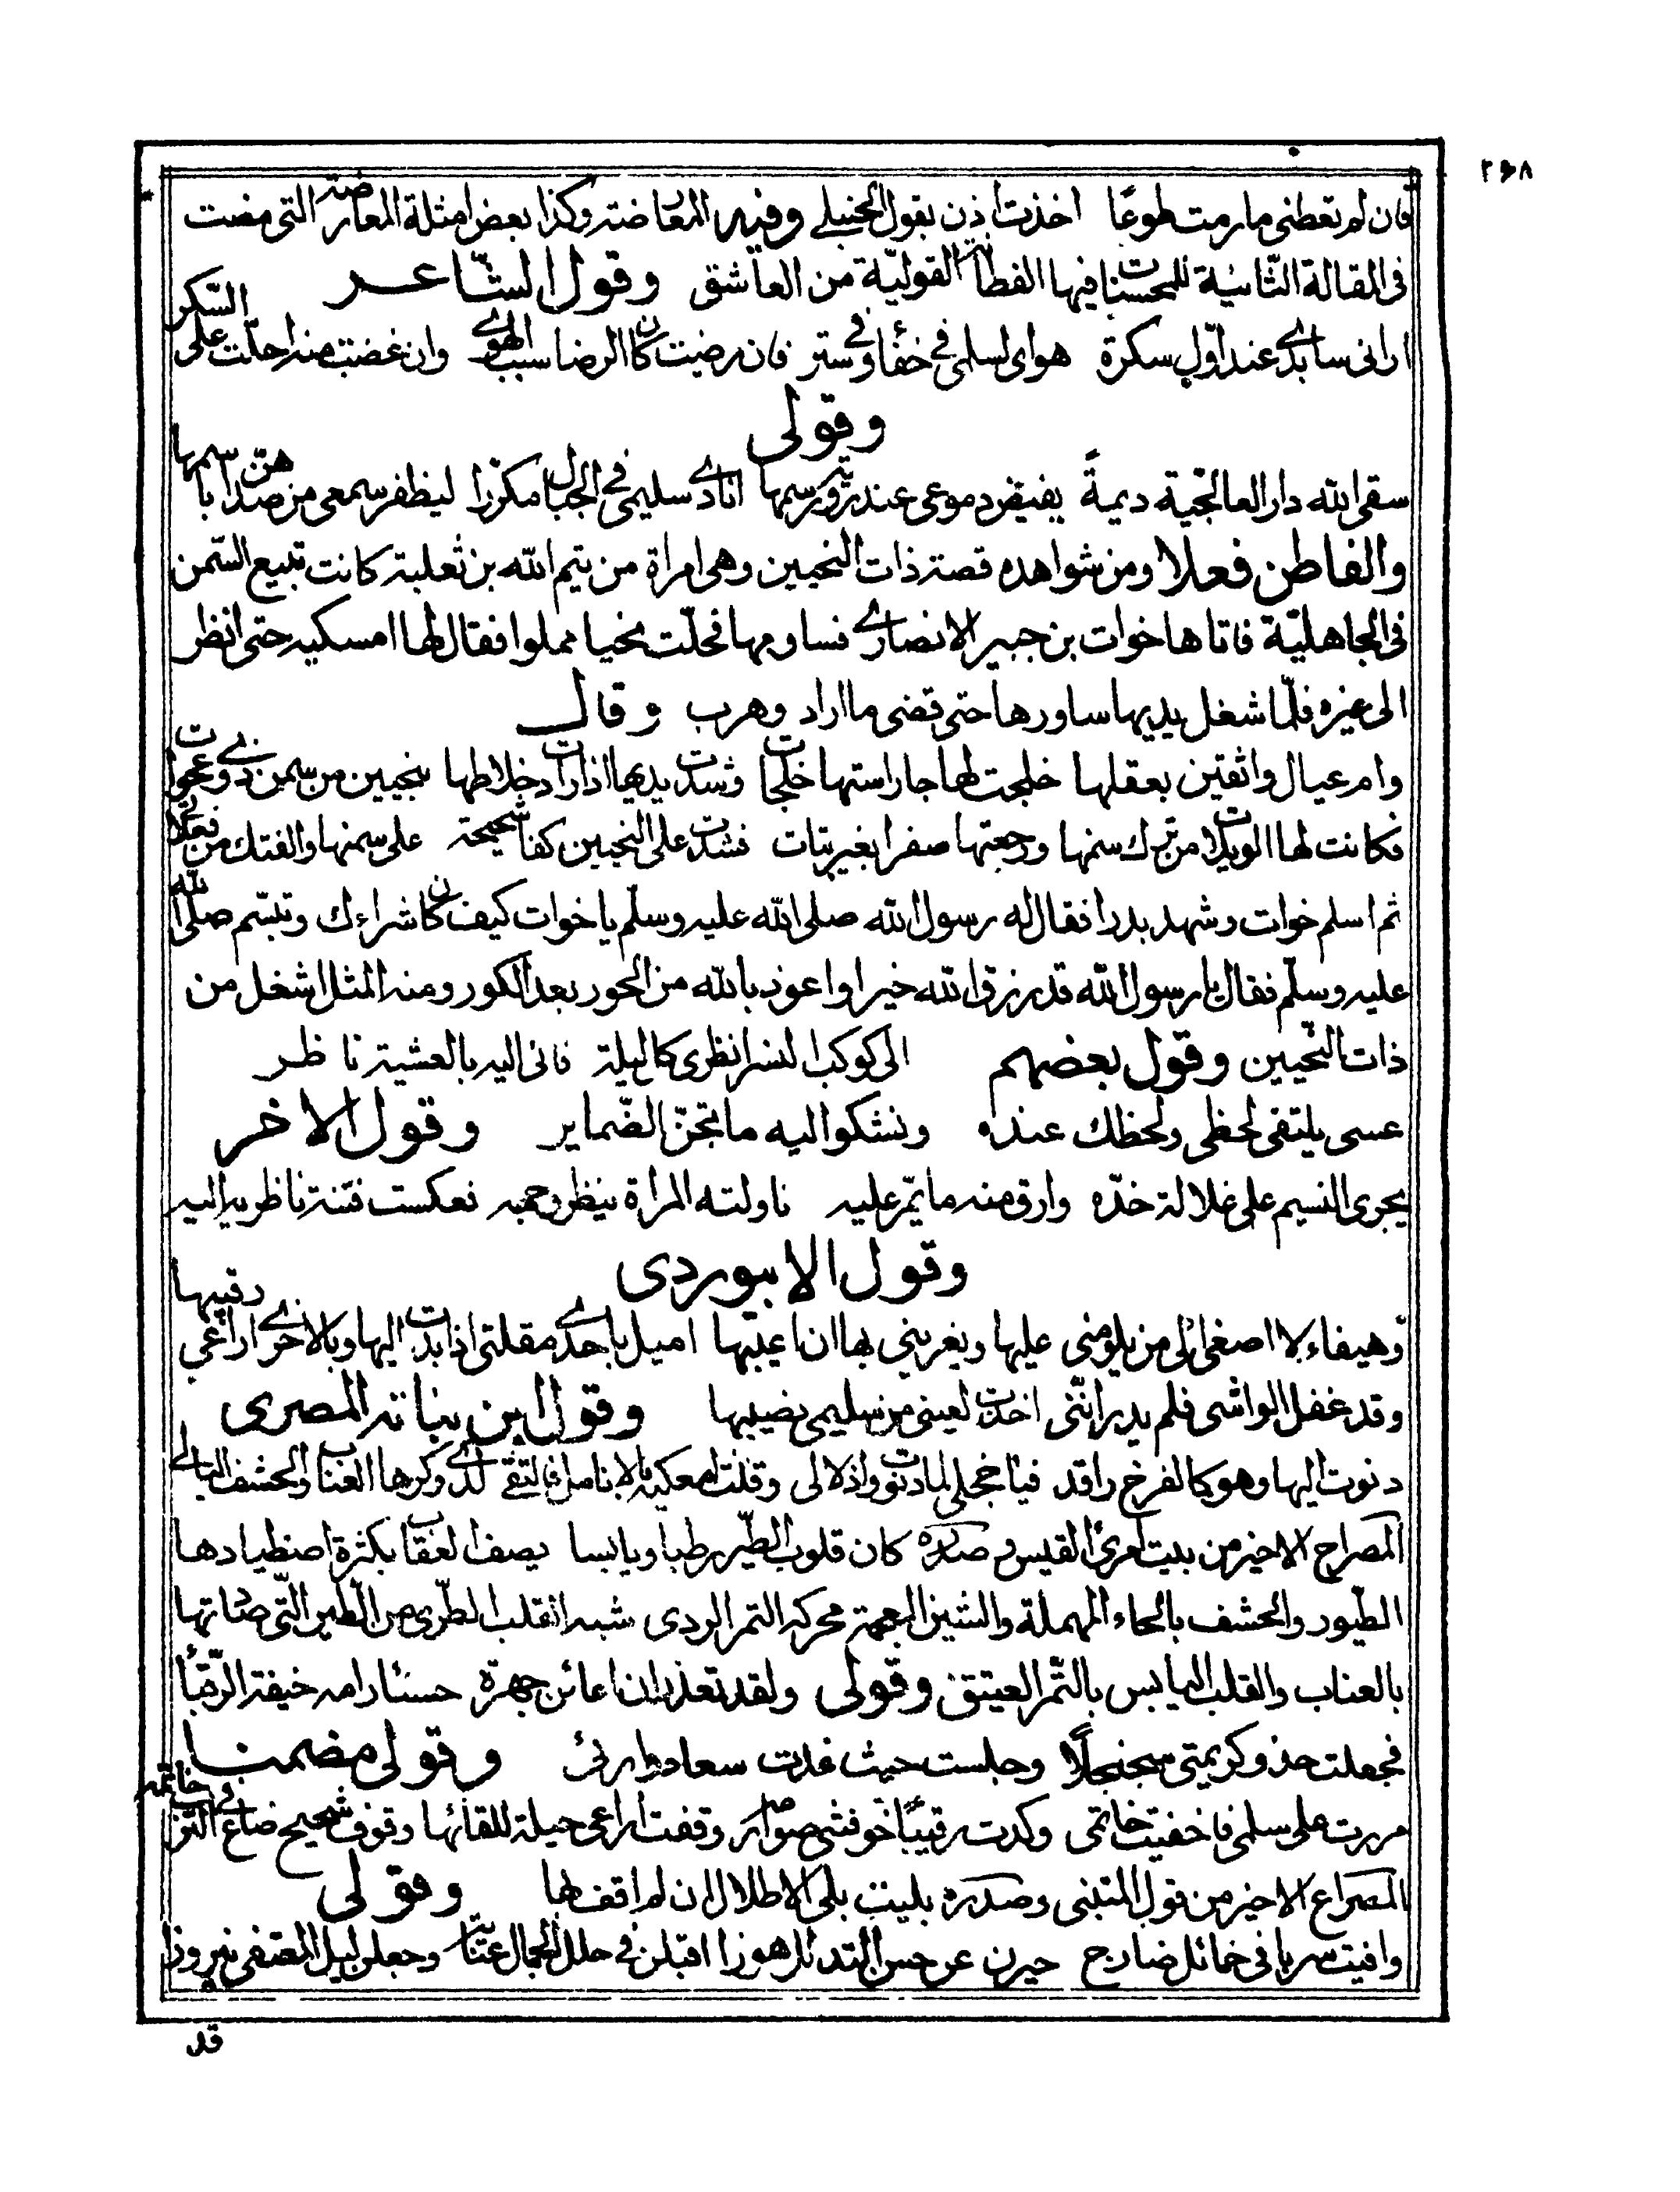 ۲۶۸
فان لم تعطنی ما رمت طوعًا اخذت اذن بقول الحنبلے وفیه المعاضته وکذا بعض امثلة المعارضته التی مضت
فی المقالة الثّانیة للمحسنات فیها الفطانة القولیّة من العاشق وقول الشّاعر
ارانی سابدے عند اوّل سکرة هوای لسلمی فے خفا وفے ستر فان رضیت کان الرضا سبب الهوے وان غضبت منه احلّت علی السّکر
وقولی
سقی الله دار العالجّیة دیمةً یفیض دموعی عند رسمها انادے سلیمی فے الجبال مکرّرا لیظفر سمعی من صداهنّ باسمها
والفاطن فعلا ومن شواهده قصته ذات النحیین وهی امراة من تیم الله بن ثعلبته کانت تبیع السّمن
فی الجاهلیّة فاتاها خوات بن جبیر الانصارے فساومها فحلّت نحیا مملوا فقال لها امسکیه حتی انظر
الی غیره فلمّا شغل یدیها ساورها حتی قضی ما اراد وهرب وقال
وام عیال واثقین بعقلها خلجت لها جار استها خلجات وشدت یدیها اذا ردات خلاطها بنحیین من سمن ذوے عجوات
فکانت لها الویلات من ترک سمنها ورجعتها صفرا بغیر بتات فشدت علی النحیین کفا شحیحته علی سمنها والفتك من فعلاتے
ثم اسلم خوات وشهد بدرا فقال له رسول الله صلی الله علیه وسلّم یا خوات کیف کان شراءك وتبسّم صلّی الله
علیه وسلّم فقال یا رسول الله قد رزق الله خیرا واعوذ بالله من الحور بعد الکور ومنه المثل اشغل من
ذات النّحیین وقول بعضهم الی کوکب النسر انظری کل لیلة فانی الیه بالعشیته ناظر
عسی یلتقی لحظی ولحظك عنده ونشکوا الیه ما تجنّ الضّمایر وقول الاخر
یجری النسیم علی غلالة خدّه وارق منه ما یمّر علیه ناولته المراة ینظر وجهه فعکست فتنة ناظریه الیه
وقول الابیوردی
وهیفاء لا اصغی الی من یلومنی علیها ویغرینی بها ان اعیبها امیل باحدے مقلتی اذا بدت الیها وبالاخرے اراعی رقیبها
وقد غفل الواشی فلم یدر انّنی اخذت لعینی من سلیمی نصیبها وقول ابن نباته المصری
دنوت الیها وهو کالفرخ راقد فیا خجلی لما دنوت واذلالی وقلت امعکیه بالانامل فالتقے لدے وکرها العناب والحشف البالے
المصراع الاخیر من بیت امرئ القیس و صدره کان قلوب الطّیر رطبا ویابسا یصف العقاب بکثرة اصطیادها
الطّیور والحشف بالحاء المهملة والشین المعجمته محرکه التمر الردی شبه القلب الطّری من الطیر التّی صادتها
بالعناب والقلب الیابس بالتّمر العتیق وقولی ولقد تعذر ان اعائن جهرة حسنا دارامه خیفة الرّقبا
فجعلت حذو کریمتی سجنجلًا وجلست حیث غدت سعاد ورائی وقولی مضمنا
مررت علی سلمی فاخفیت خاتمی وکدت رقیبًا خوفتنی صوارمه وقفت اراعی حیلة للقائها وقوف شحیح ضاع فے التّرب خاتمه
المصراع الاخیر من قول المتنبی وصدره بلیت بلی الاطلال ان لم اقف بها وقولی
وافیت سربا فی خمائل ضارج حیرن عن حسن التدلل هوزا اقبلن فے حلل الجمال عتیته وجعلن لیل المعتفی نیروزا
قد